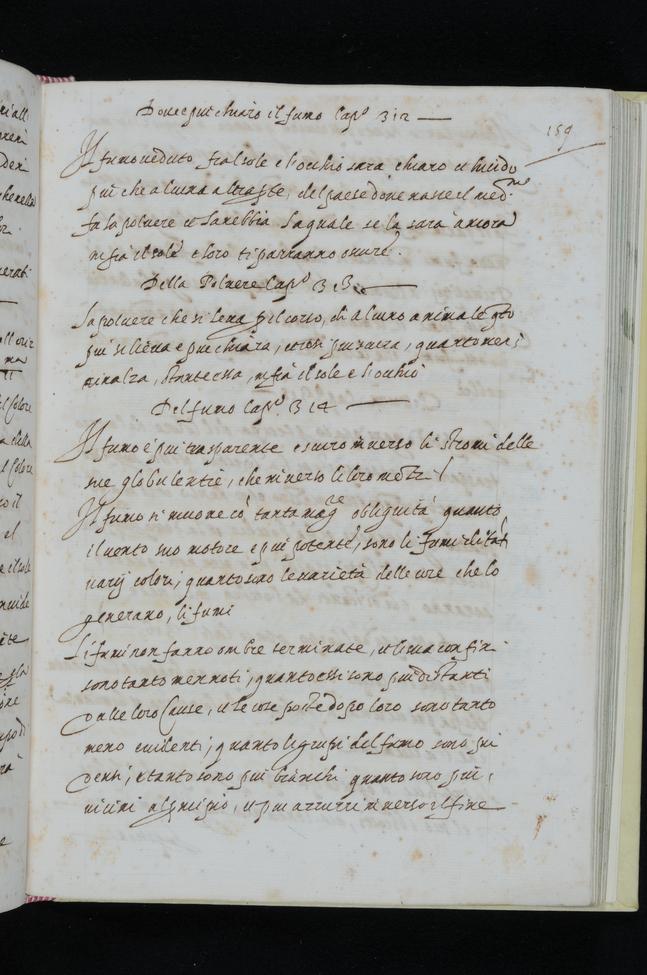 Dove è piu chiaro il fumo Cap.º 312
159
Il fumo veduto fra'l sole e l'occhio sara chiaro et lucido
piu che alcuna altra pte, del paese dove nasce il med.mo
fa la polvere et la nebbia la quale se tu sarà ancora
infra il sole e loro ti parranno oscure.
Della Polvere Cap.º 313
La polvere che si leva p il corso, di alcuno animale qto
piu si lieva è piu chiara, et cosi piu scura, quanto meno
s'inalza, stante essa, infra il sole e l'occhio
Del fumo Cap.º 314
Il fumo è piu trasparente e scuro inverso li stremi delle
sue globulentie, che inverso li loro mezzi
Il fumo si muove cō tanta mag.re obliquità quanto
il vento suo motore è piu potente, sono li fumi di tāti
varij colori, quanto sono le varietà delle cose che lo
generano, li fumi
Li fumi non fanno ombre terminate, et li sua confini
sono tanto men noti, quanto essi sono piu distanti
dalle loro Cause, et le cose poste dopo loro sono tanto
meno evidenti, quanto li gruppi del fumo sono piu
densi, e tanto sono piu bianchi quanto sono piu,
vicini al principio, et piu azzurri inverso il fine